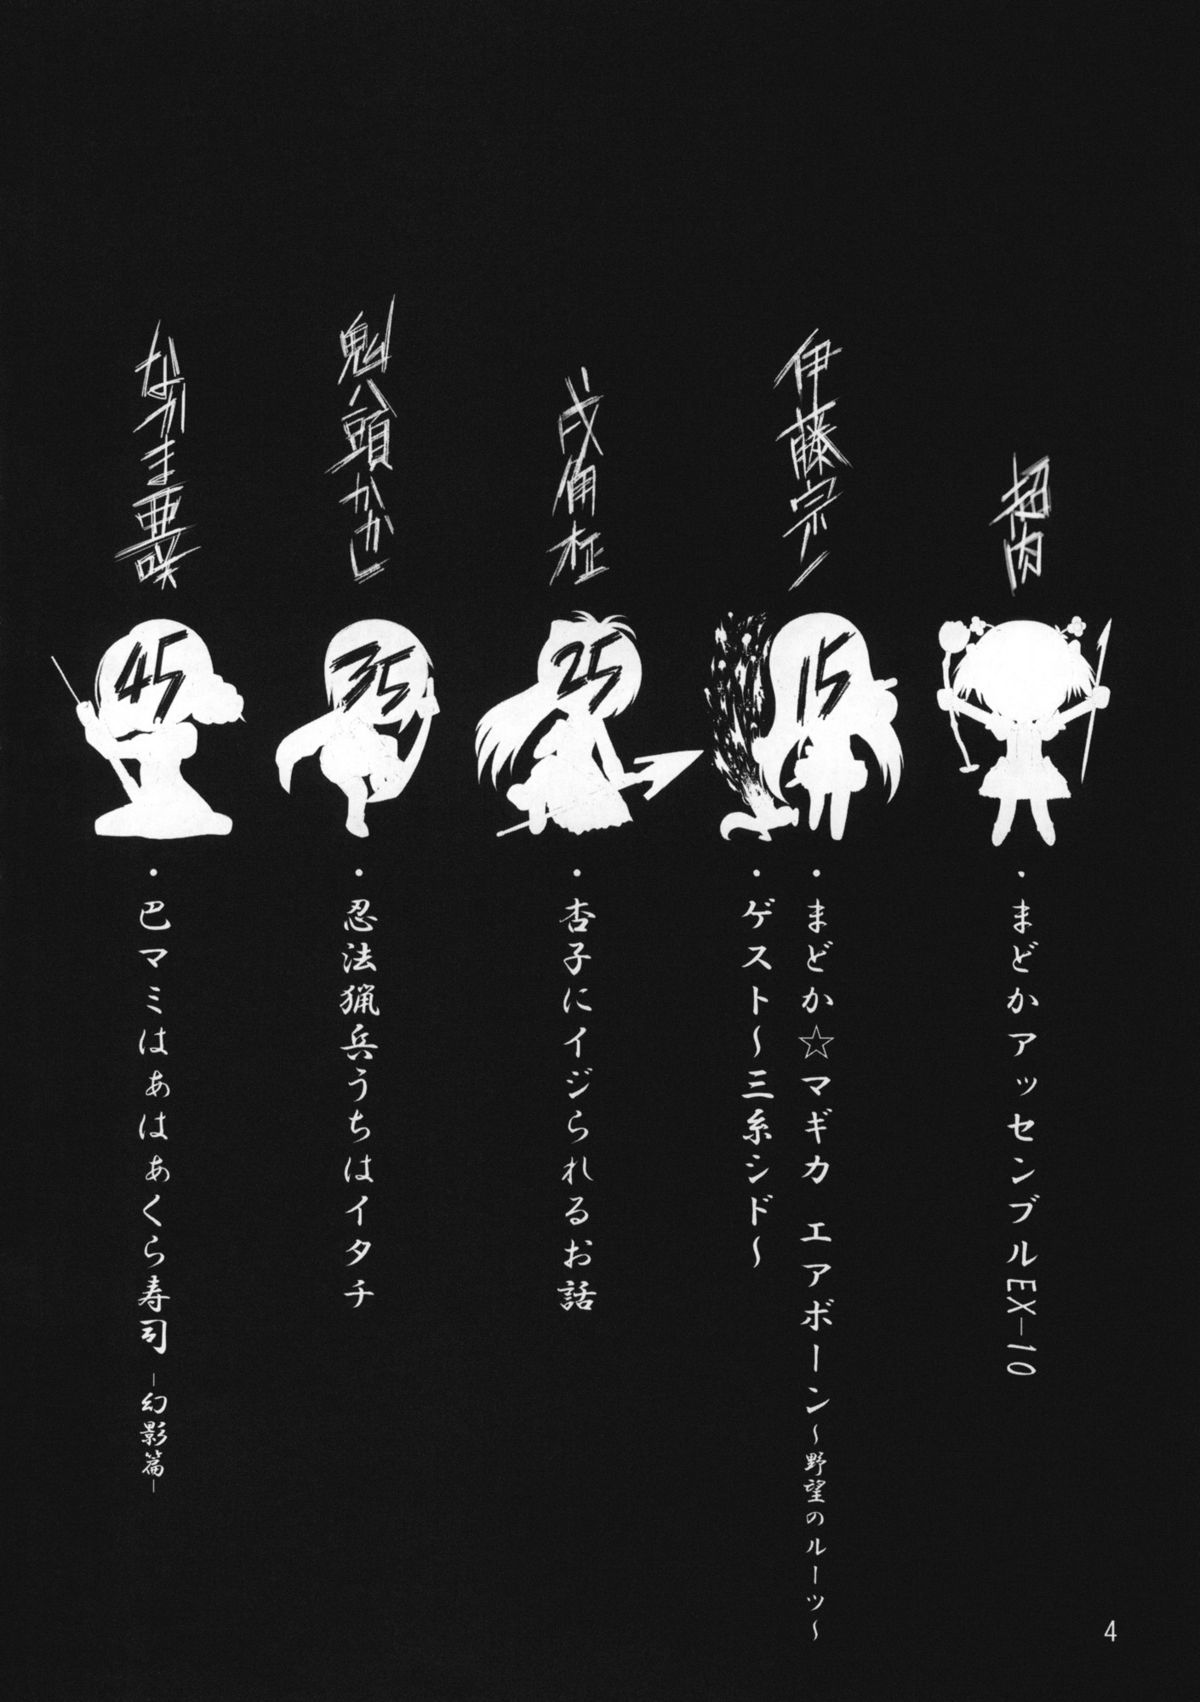 招肉
まどかアッセンブルEX-10
伊藤宗一
15
まどか☆マギカ エアボーン～野望のルーツ～
ゲスト～三糸シド～
戌角柾
25
・杏子にイジられるお話
魁八頭かかし
35
・忍法猟兵うちはイタチ
なかま亜咲
45
・巴マミはぁはぁくら寿司 -幻影篇-
4